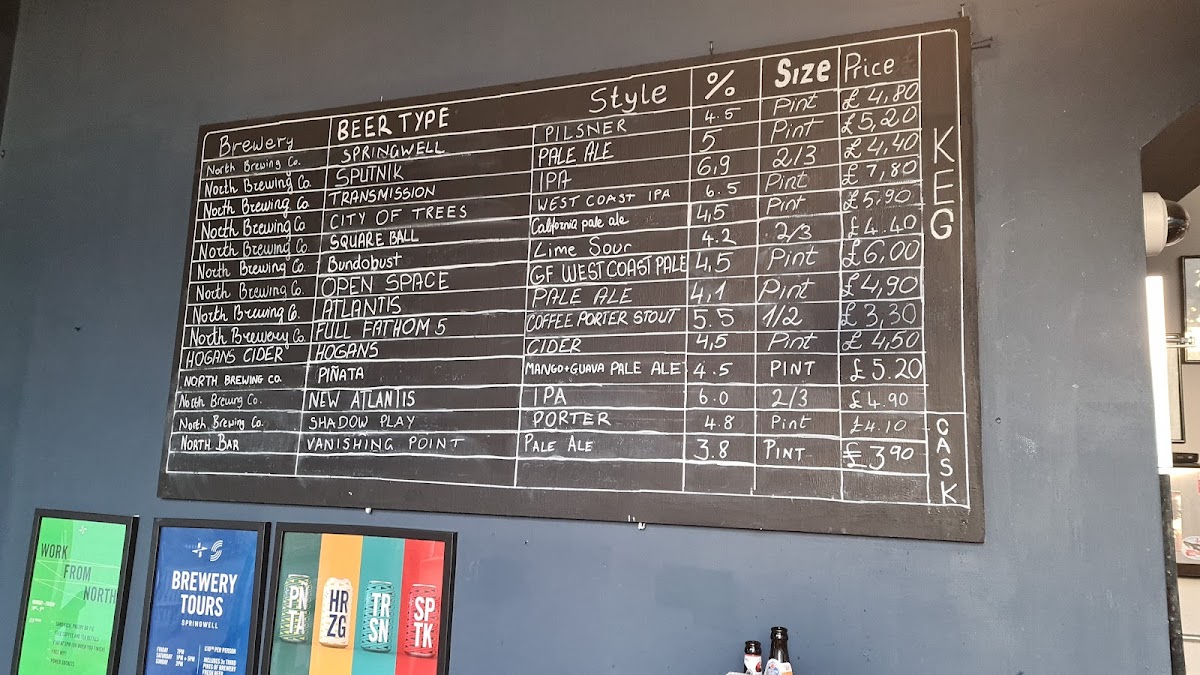 Brewery BEER TYPE Style % Size Price
North Brewing Co. SPRINGWELL PILSNER 4.5 Pint £4,80
North Brewing Co. SPUTNIK PALE ALE 5 Pint £5,20
North Brewing Co. TRANSMISSION IPA 6,9 2/3 £4,40
North Brewing Co CITY OF TREES WEST COAST IPA 6.5 Pint £7,80
North Brewing Co SQUARE BALL California pale ale 4,5 Pint £5.90
North Brewing Co. Bundobust Lime Sour 4.2 2/3 £4.40
North Brewing Co. OPEN SPACE GF WEST COAST PALE 4,5 Pint £6,00
North Brewing Co. ATLANTIS PALE ALE 4,1 Pint £4,90
North Brewery Co. FULL FATHOM 5 COFFEE PORTER STOUT 5.5 1/2 £3,30
HOGANS CIDER HOGANS CIDER 4,5 Pint £4,50
NORTH BREWING CO. PIÑATA MANGO+GUAVA PALE ALE 4.5 PINT £5.20
North Brewing Co. NEW ATLANTIS IPA 6.0 2/3 £4.90
North Brewing Co. SHADOW PLAY PORTER 4.8 Pint £4.10
NORTH BAR VANISHING POINT PALE ALE 3.8 PINT £3.90
KEG
CASK
WORK
FROM
NORTH
BREWERY
TOURS
SPRINGWELL
FRIDAY 7PM
SATURDAY 1PM + 3PM
SUNDAY 2PM
PER PERSON
PN
TA
HR
ZG
TR
SN
SP
TK